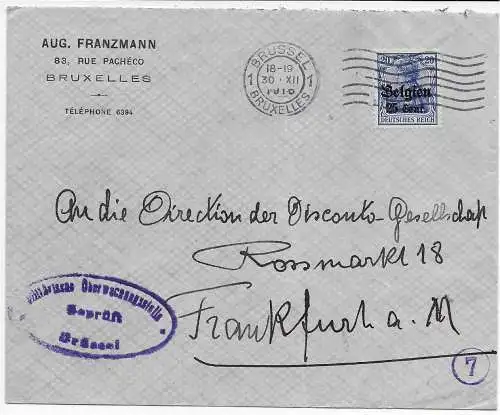 AUG. FRANZMANN
83, RUE PACHÉCO
BRUXELLES
TÉLÉPHONE 6394
BRUSSEL
18-19
1 30·XII 1
1916
BRUXELLES
20 20
Belgien
25 Cent.
DEUTSCHES REICH
An die Direction der Disconto-Gesellschaft
Rossmarkt 18
Frankfurt a. M
Militärische Überwachungsstelle
Geprüft
Brüssel
7